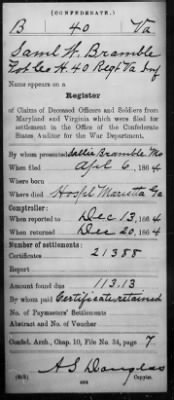 (CONFEDERATE.)
B 40 Va
Saml H. Bramble
Co H. 40 Regt Va Inf
Name appears on a
Register
of Claims of Deceased Officers and Soldiers from
Maryland and Virginia which were filed for
settlement in the Office of the Confederate
States Auditor for the War Department.
By whom presented Sallie Bramble Mo
When filed Apl 6, 1864
Where born
Where died Hospl Marietta Ga
Comptroller:
When reported to Dec 13, 1864
When returned Dec 20, 1864
Number of settlements:
Certificates 21388
Report
Amount found due 113.13
By whom paid Certificate retained
No. Paymasters' Settlements
Abstract and No. of Voucher
Confed. Arch., Chap. 10, File No. 34, page 7
A S Douglas
Copyist.